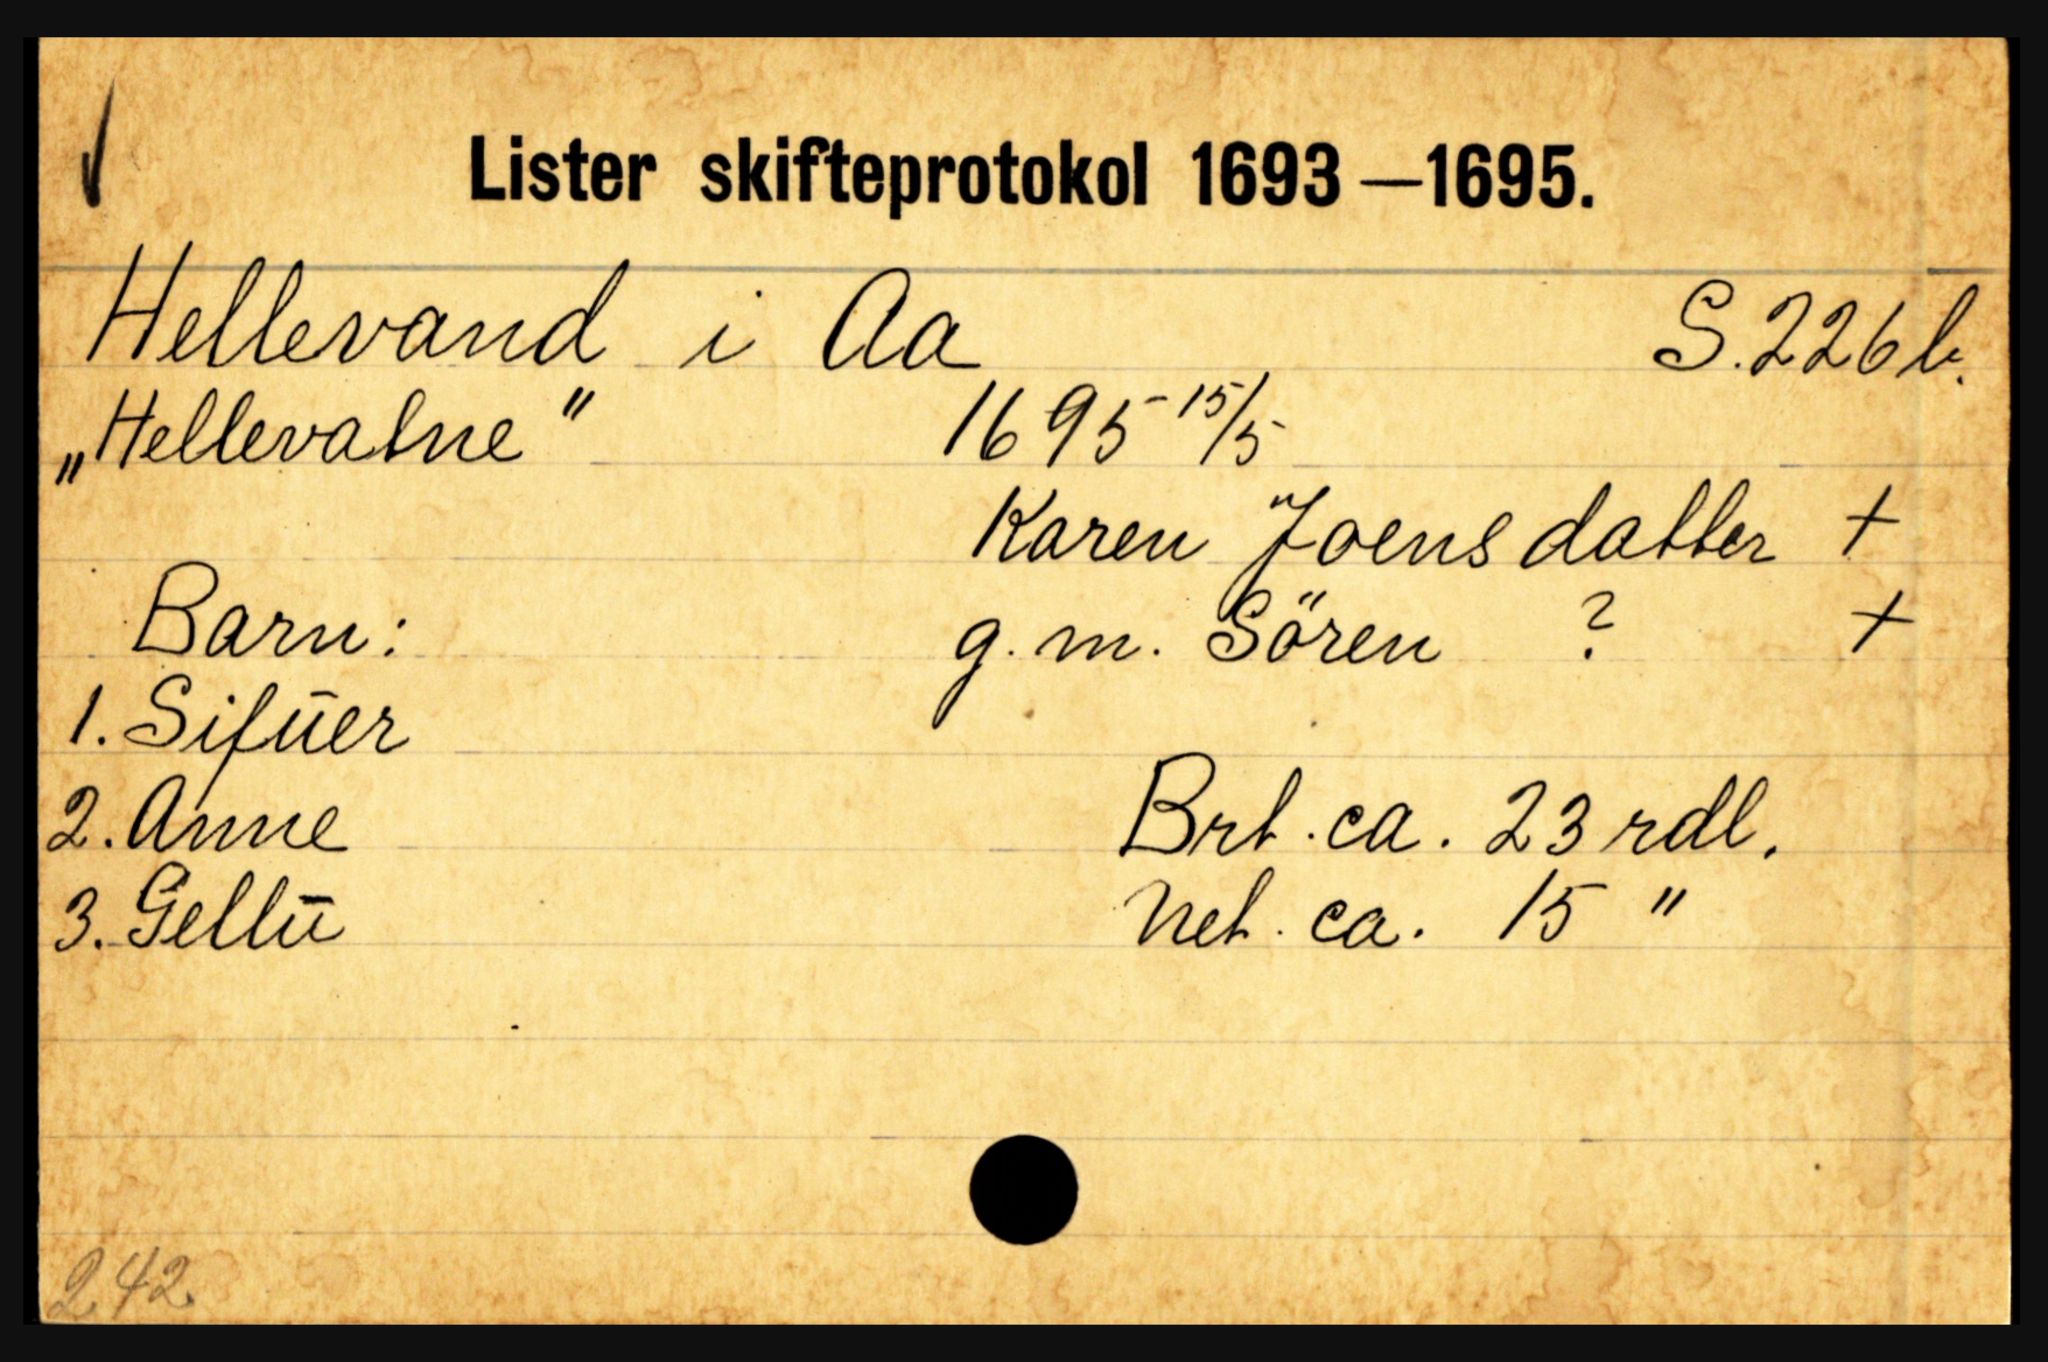 Lister skifteprotokol 1693—1695.
Hellevand i Aa S. 226 b.
„Hellevatne" 1695 15/5
Karen Joensdatter +
Barn: g. m. Sören ? +
1. Sifūer
2. Anne Brt. ca. 23 rdl.
3. Gellū Net. ca. 15 "
242.